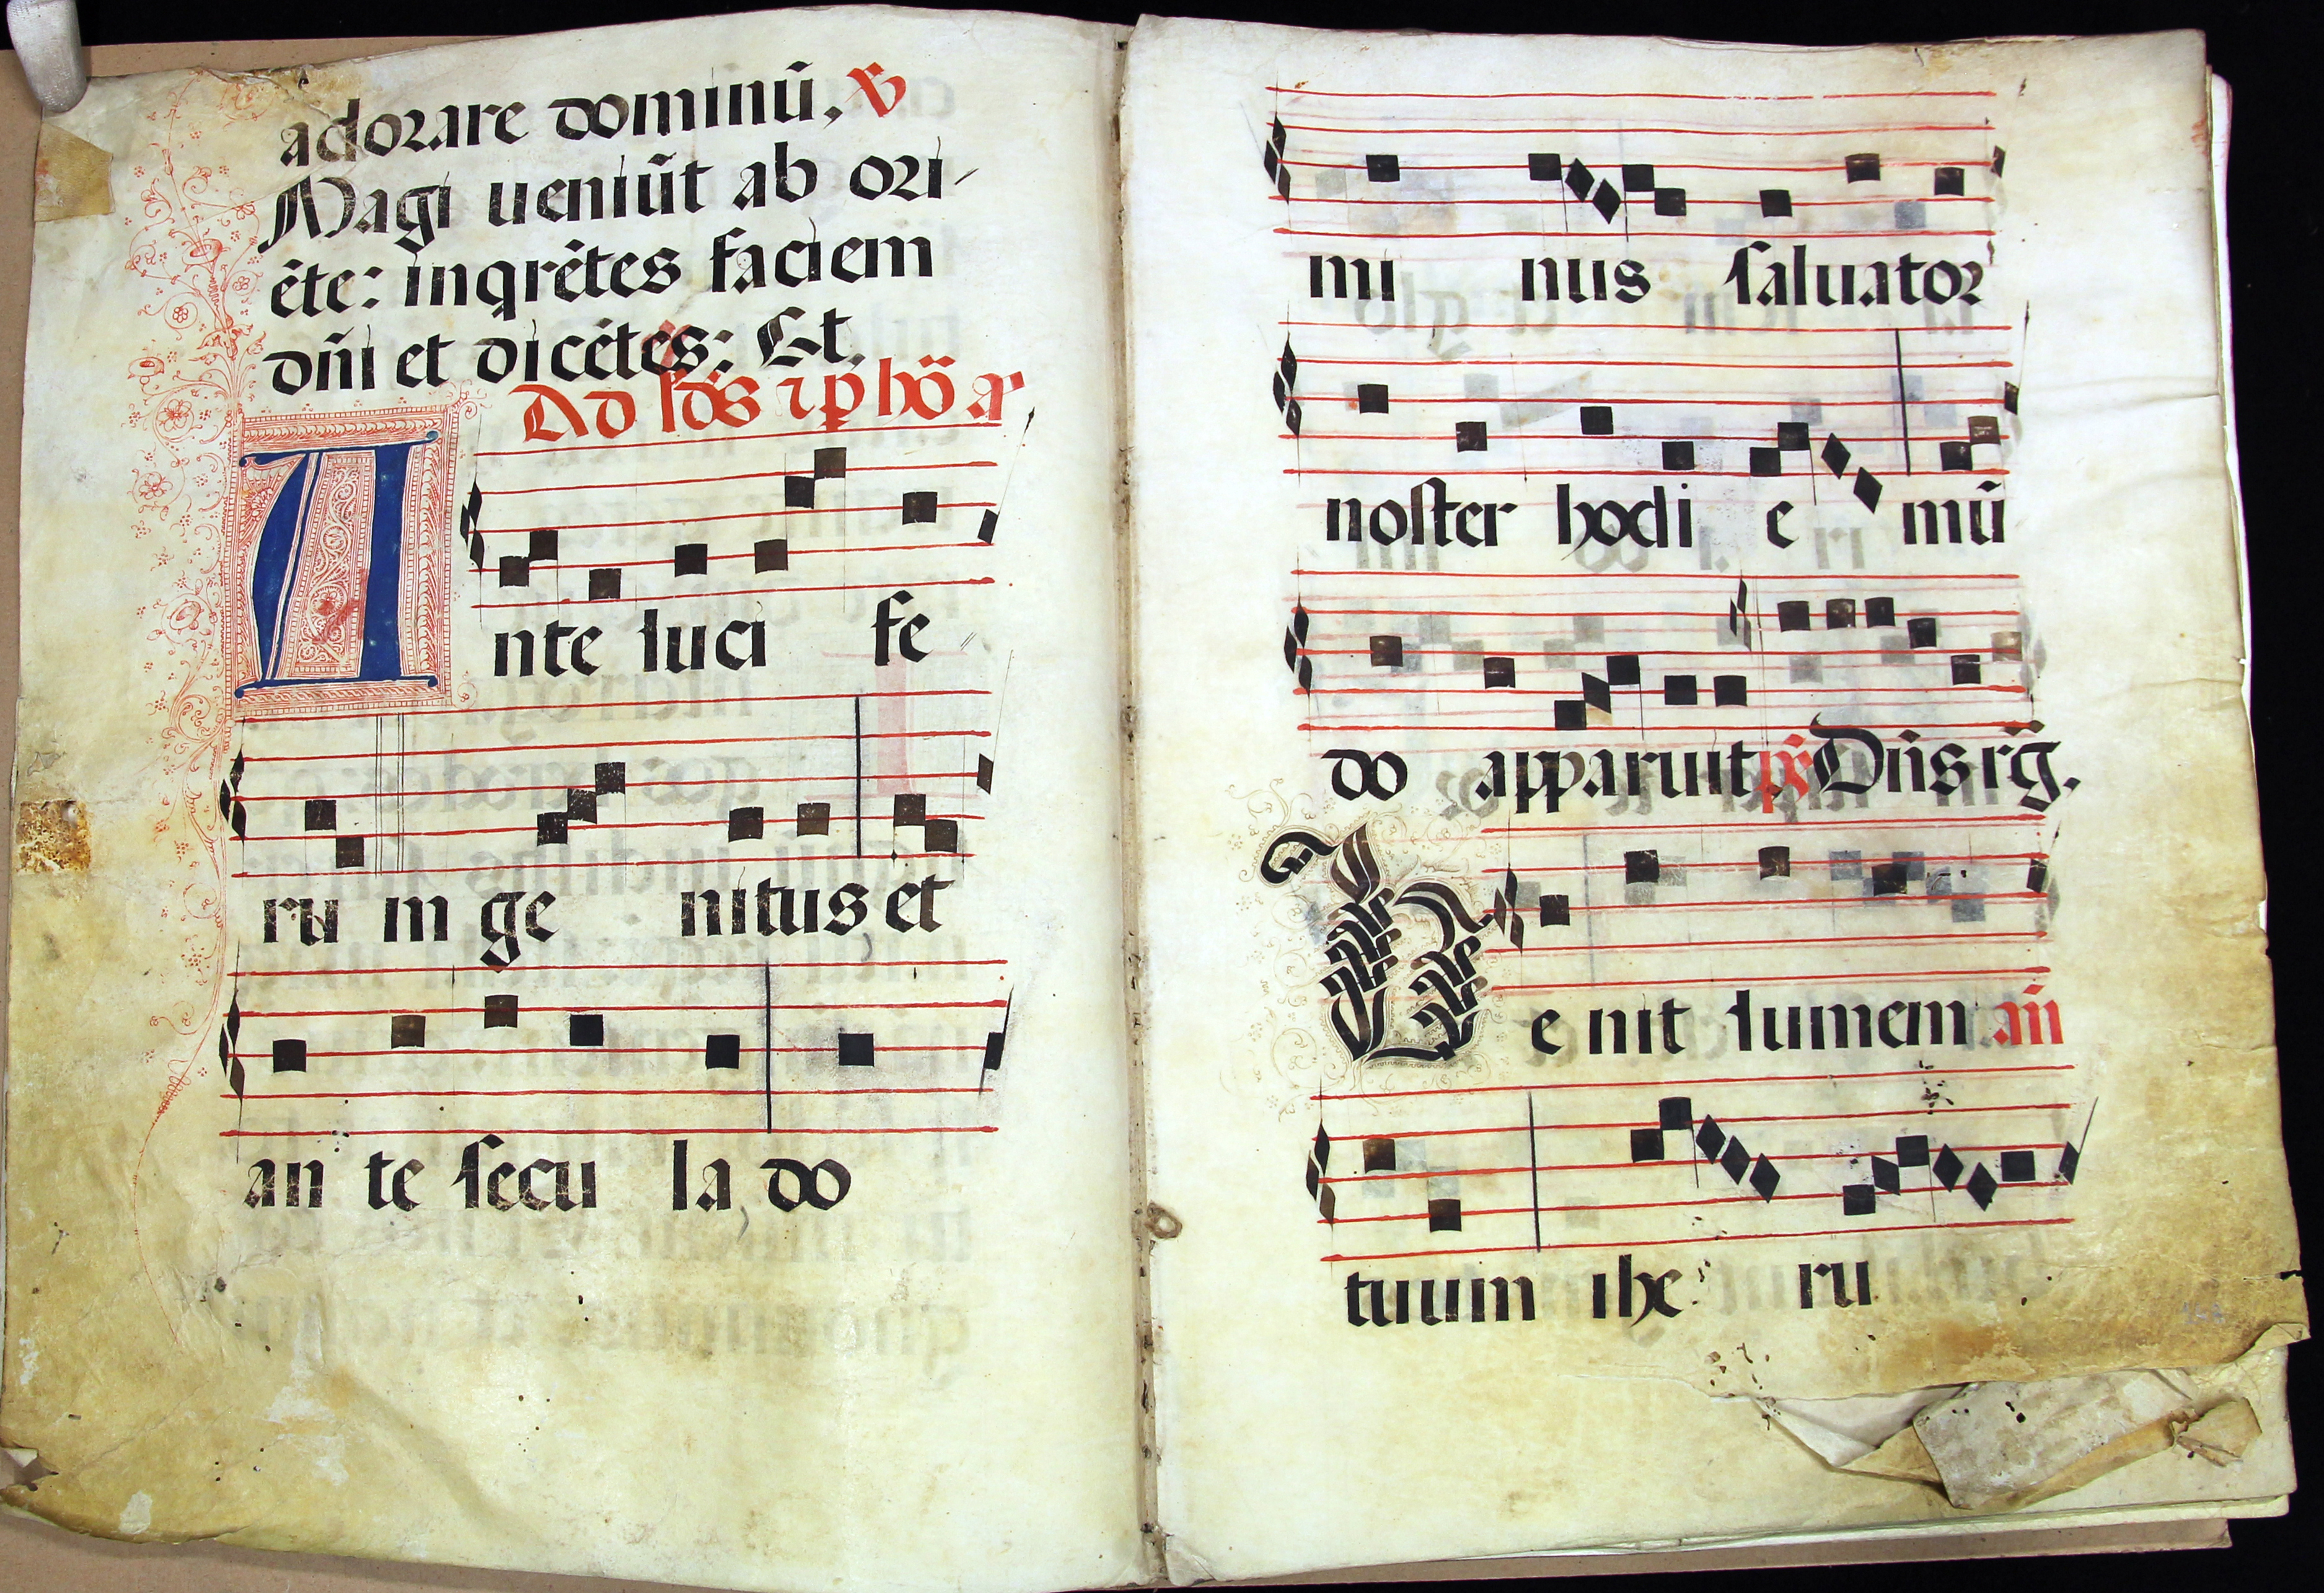 adorare dominū. ℣
Magi ueniūt ab ori-
ēte: inqrētes faciem
dn̄i et dicētes: Et.
Ad ld̄s ⁊ p hō a
Ante luci fe
ru m ge nitus et
an te ſecu la do
mi nus ſaluator
noſter hodi e mū
do apparuit ps̄ Dn̄s rḡ.
Ue nit lumem an̄
tuum ihe ru